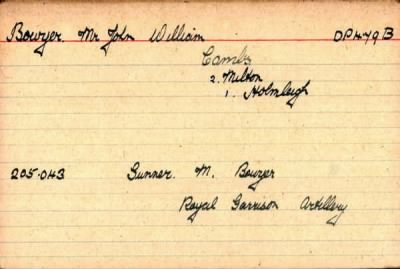 Bowyer. Mr John William DP4479B
Cambs
2. Milton
1. Holmleigh
205.043 Gunner. M. Bowyer
Royal Garrison Artillery